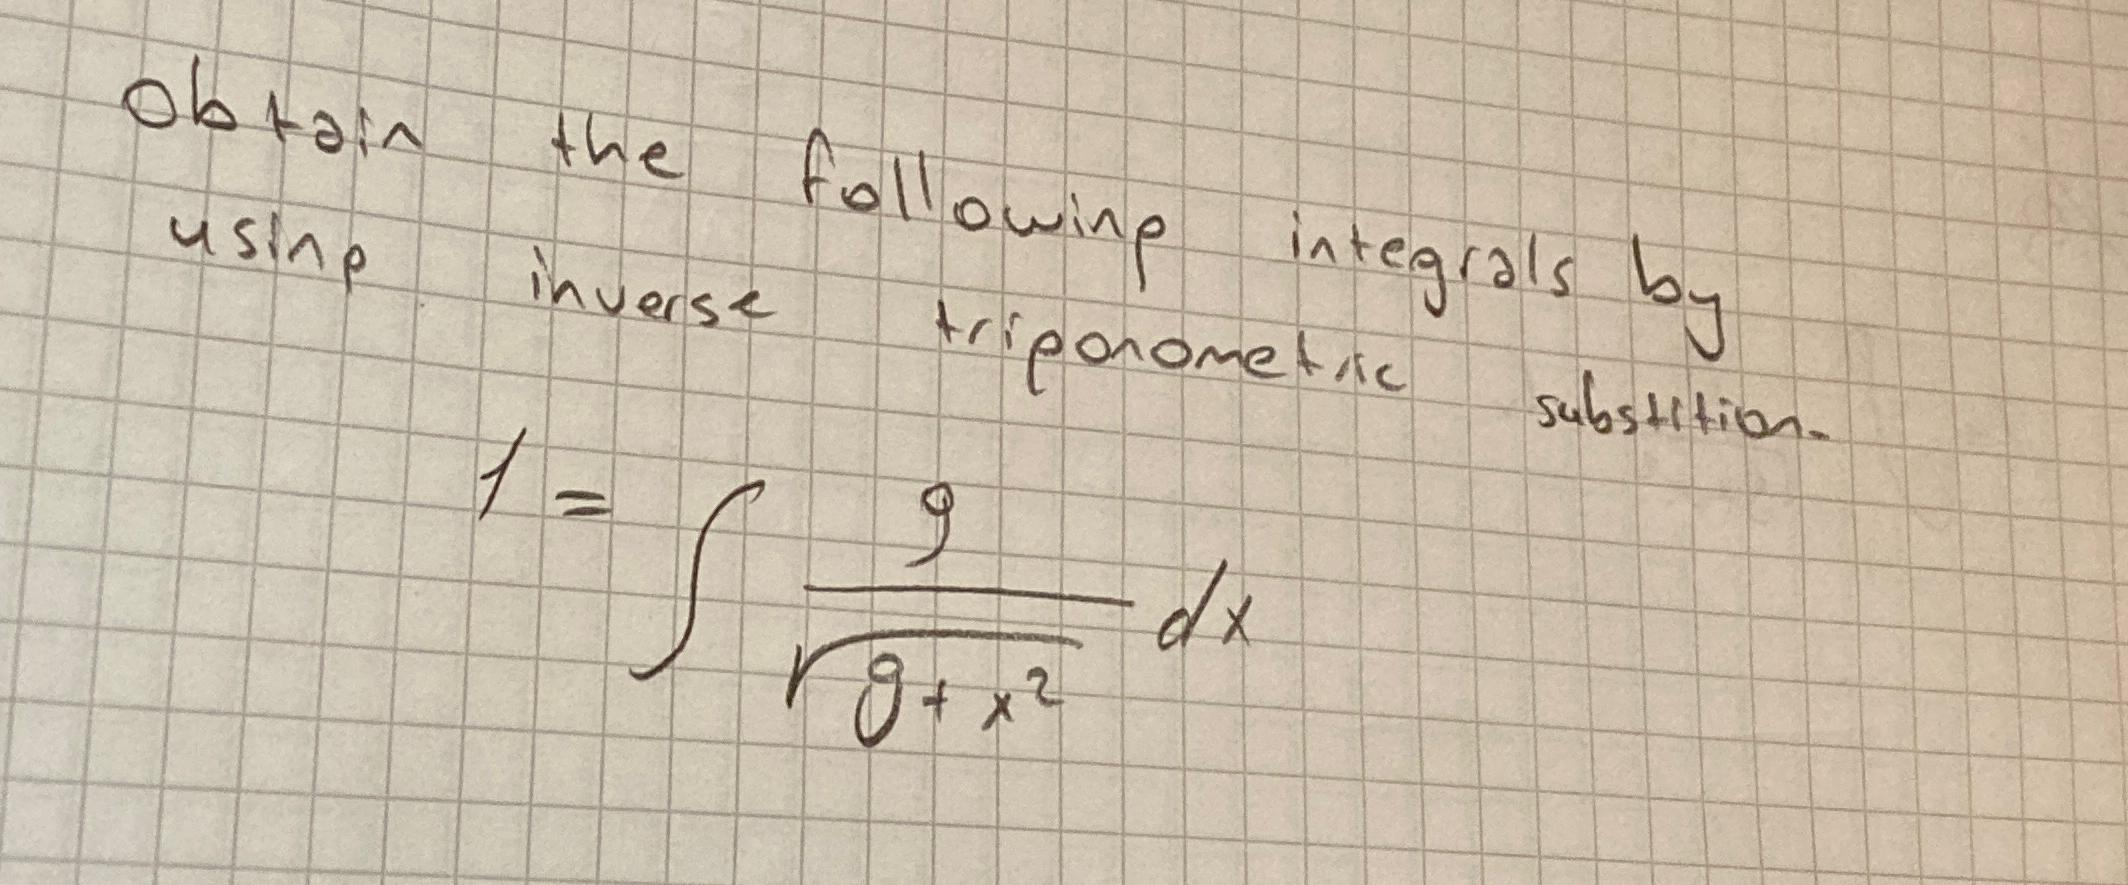 Obtain the following integrals by
using inverse trigonometric substition.
1 = ∫ 9 / √(9 + x²) dx